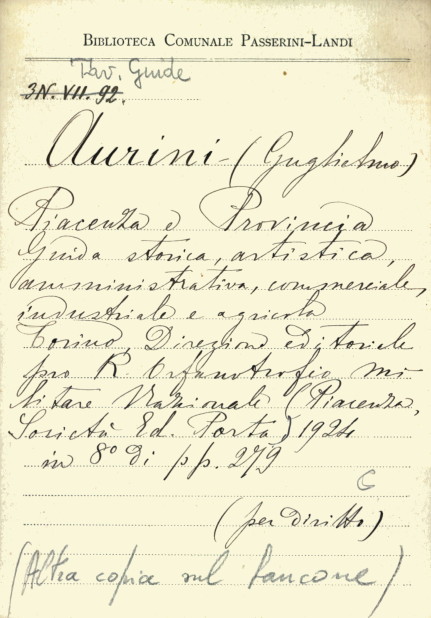 BIBLIOTECA COMUNALE PASSERINI-LANDI
Tav. Guide
3N. VII. 92.
Aurini - (Guglielmo)
Piacenza e Provincia
Guida storica, artistica,
amministrativa, commerciale,
industriale e agricola
Torino, Direzione editoriale
pro R. Orfanotrofio Mi
litare Nazionale (Piacenza,
Società Ed. Porta) 1924
in 8° di pp. 279
G
(per diritto)
(Altra copia sul bancone)